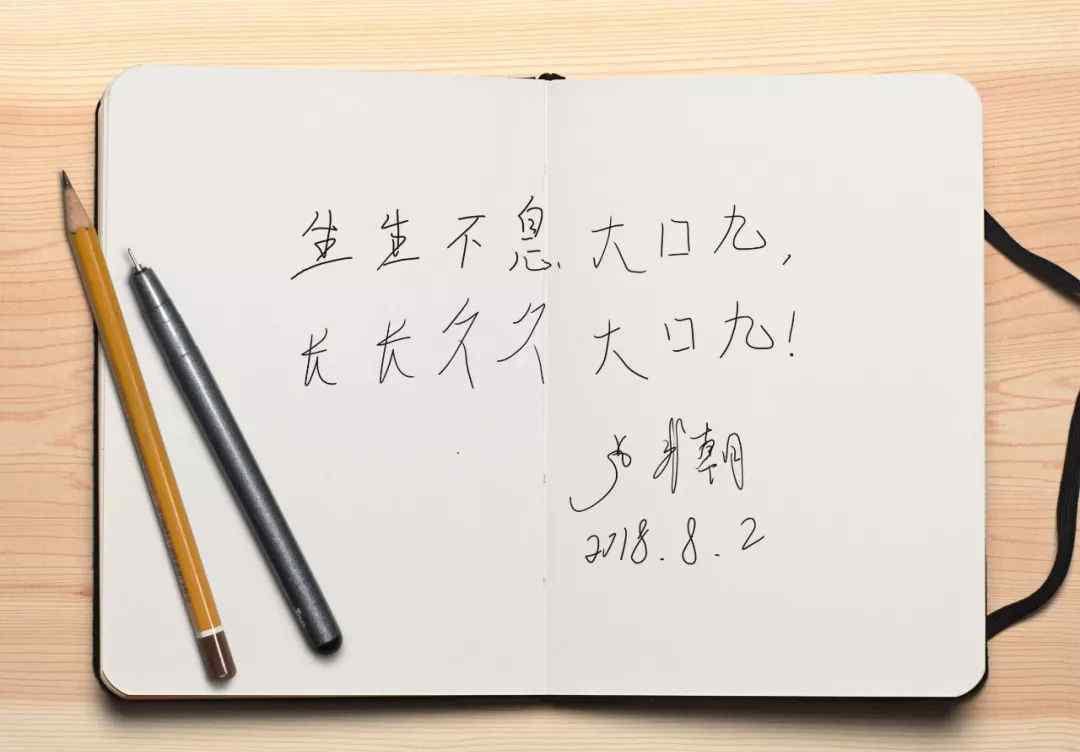 生生不息大口九,
长长久久大口九!
朝
2018.8.2